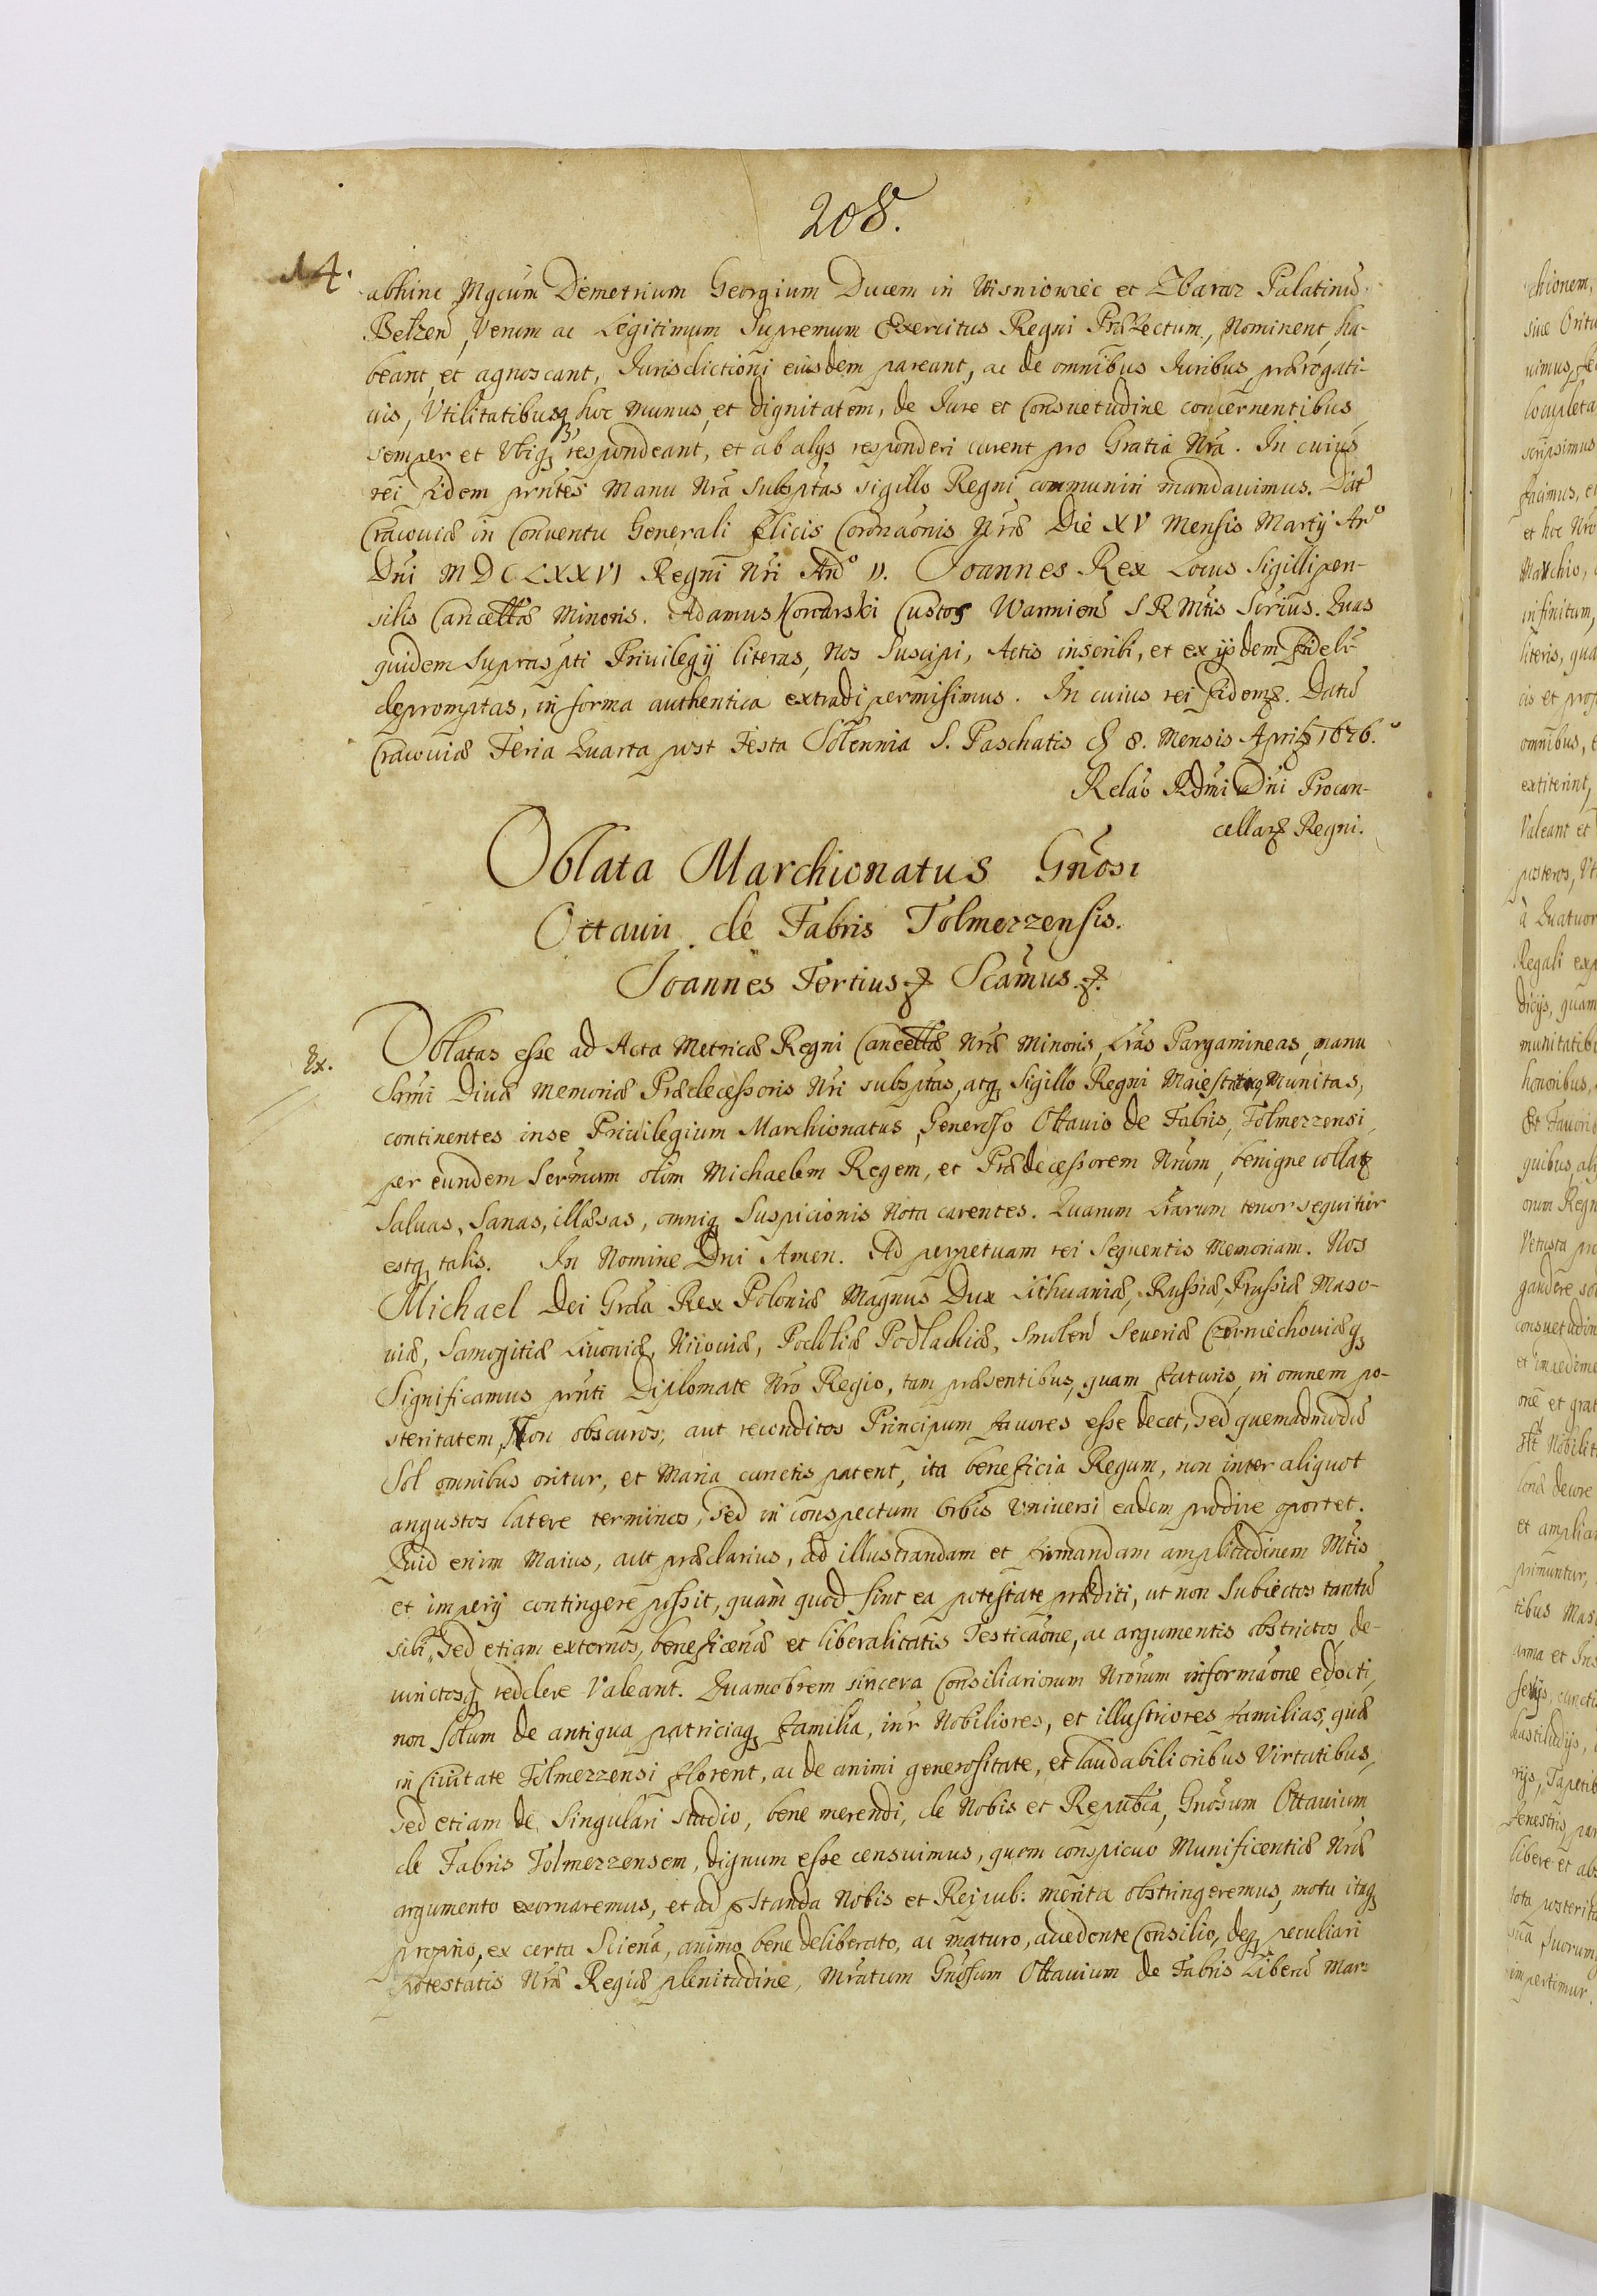 208.
14.
abhinc Mgcum Demetrium Georgium Ducem in Wisniowiec et Zbaraz Palatinū
Belzen̄, Verum ac Legitimum Supremum Exercitus Regni Præfectum, Nominent, ha-
beant, et agnoscant, Jurisdictioni eiusdem pareant, ac de omnibus Juribus prærogati-
uis, Vtilitatibusq hoc munus, et dignitatem, de Jure et Consuetudine concernentibus
semper et Vbiq respondeant, et ab alijs responderi curent pro Gratia Nrã. In cuius
rei fidem prntes Manu Nrã Subsptas sigillo Regni communiri mandauimus. Dat
Cracouiæ in Conuentu Generali felicis Coronaõnis Nræ Die XV Mensis Martij Anº
Dni MDCLXXVI Regni Nri Anº II. Joannes Rex Locus Sigilli pen-
silis Cancellæ Minoris. Adamus Konarski Custos Warmien̄ S R Mtis Scrius. Quas
quidem Supraspti Priuilegij literas, Nos Suscipi, Actis inscribi, et ex ijsdem fidelr
depromptas, in forma authentica extradi permisimus. In cuius rei fidem. Datū
Cracouiæ Feria Quarta post Festa Solennia S. Paschatis 8. Mensis April 1676.º
Relaõ Rdmi Dni Procan-
cellar Regni.
Oblata Marchionatus Gnosi
Ottauii de Fabris Tolmezzensis.
Joannes Tertius Scamus
Ex.
Oblatas esse ad Acta Metricæ Regni Cancellæ Nræ Minoris, Lras Pargamineas, manu
Srmi Diuæ Memoriæ Prædecessoris Nri subsptas, atq Sigillo Regni Maiestatisq Munitas,
continentes in se Priuilegium Marchionatus Generoso Ottauio de Fabris, Tolmezzensi,
per eundem Sermum olim Michaelem Regem, et Prædecessorem Nrum, benigne collat
Saluas, Sanas, illæsas, omniq Suspicionis Nota carentes. Quarum Lrarum tenor sequitur
estq talis. In Nomine Dni Amen. Ad perpetuam rei Sequentis Memoriam. Nos
Michael Dei Grãa Rex Poloniæ Magnus Dux Lithuaniæ, Russiæ, Prussiæ Maso-
uiæ, Samogitiæ Liuoniæ, Kiiouiæ, Podoliæ Podlachiæ, Smolen̄ Seueriæ Czerniechouiæq
Significamus prnti Diplomate Nro Regio, tam præsentibus, quam futuris, in omnem po-
steritatem, Non obscuros, aut reconditos Principum fauores esse decet, sed quemadmodū
Sol omnibus oritur, et Maria cunctis patent, ita beneficia Regum, non inter aliquot
angustos latere terminos, sed in conspectum Orbis Vniuersi eadem prodire oportet.
Quid enim Maius, aut præclarius, ad illustrandam et firmandam amplitudinem Mtis
et imperij contingere possit, quàm quod sint ea potestate præditi, ut non Subiectos tantū
sibi, Sed etiam externos, beneficenæ et liberalitatis Testicaõne, ac argumentis obstrictos, de-
uinctosq reddere Valeant. Quamobrem sincera Consiliariorum Nrorum informaõne edocti,
non solum de antiqua patriciaq familia, intr Nobiliores, et illustriores familias, quæ
in Ciuitate Tolmezzensi florent, ac de animi generositate, et laudabilioribus Virtutibus,
sed etiam de Singulari studio, bene merendi, de Nobis et Republica, Gnosum Ottauium
de Fabris Tolmezzensem, dignum esse censuimus, quem conspicuo Munificentiæ Nræ
argumento exornaremus, et ad pstanda Nobis et Reipub: merita obstringeremus, motu itaq
proprio, ex certa Sciena, animo bene deliberato, ac maturo, accedente Consilio, deq peculiari
potestatis Nræ Regiæ plenitudine, Mratum Gnosum Ottauium de Fabris Liberū Mar-